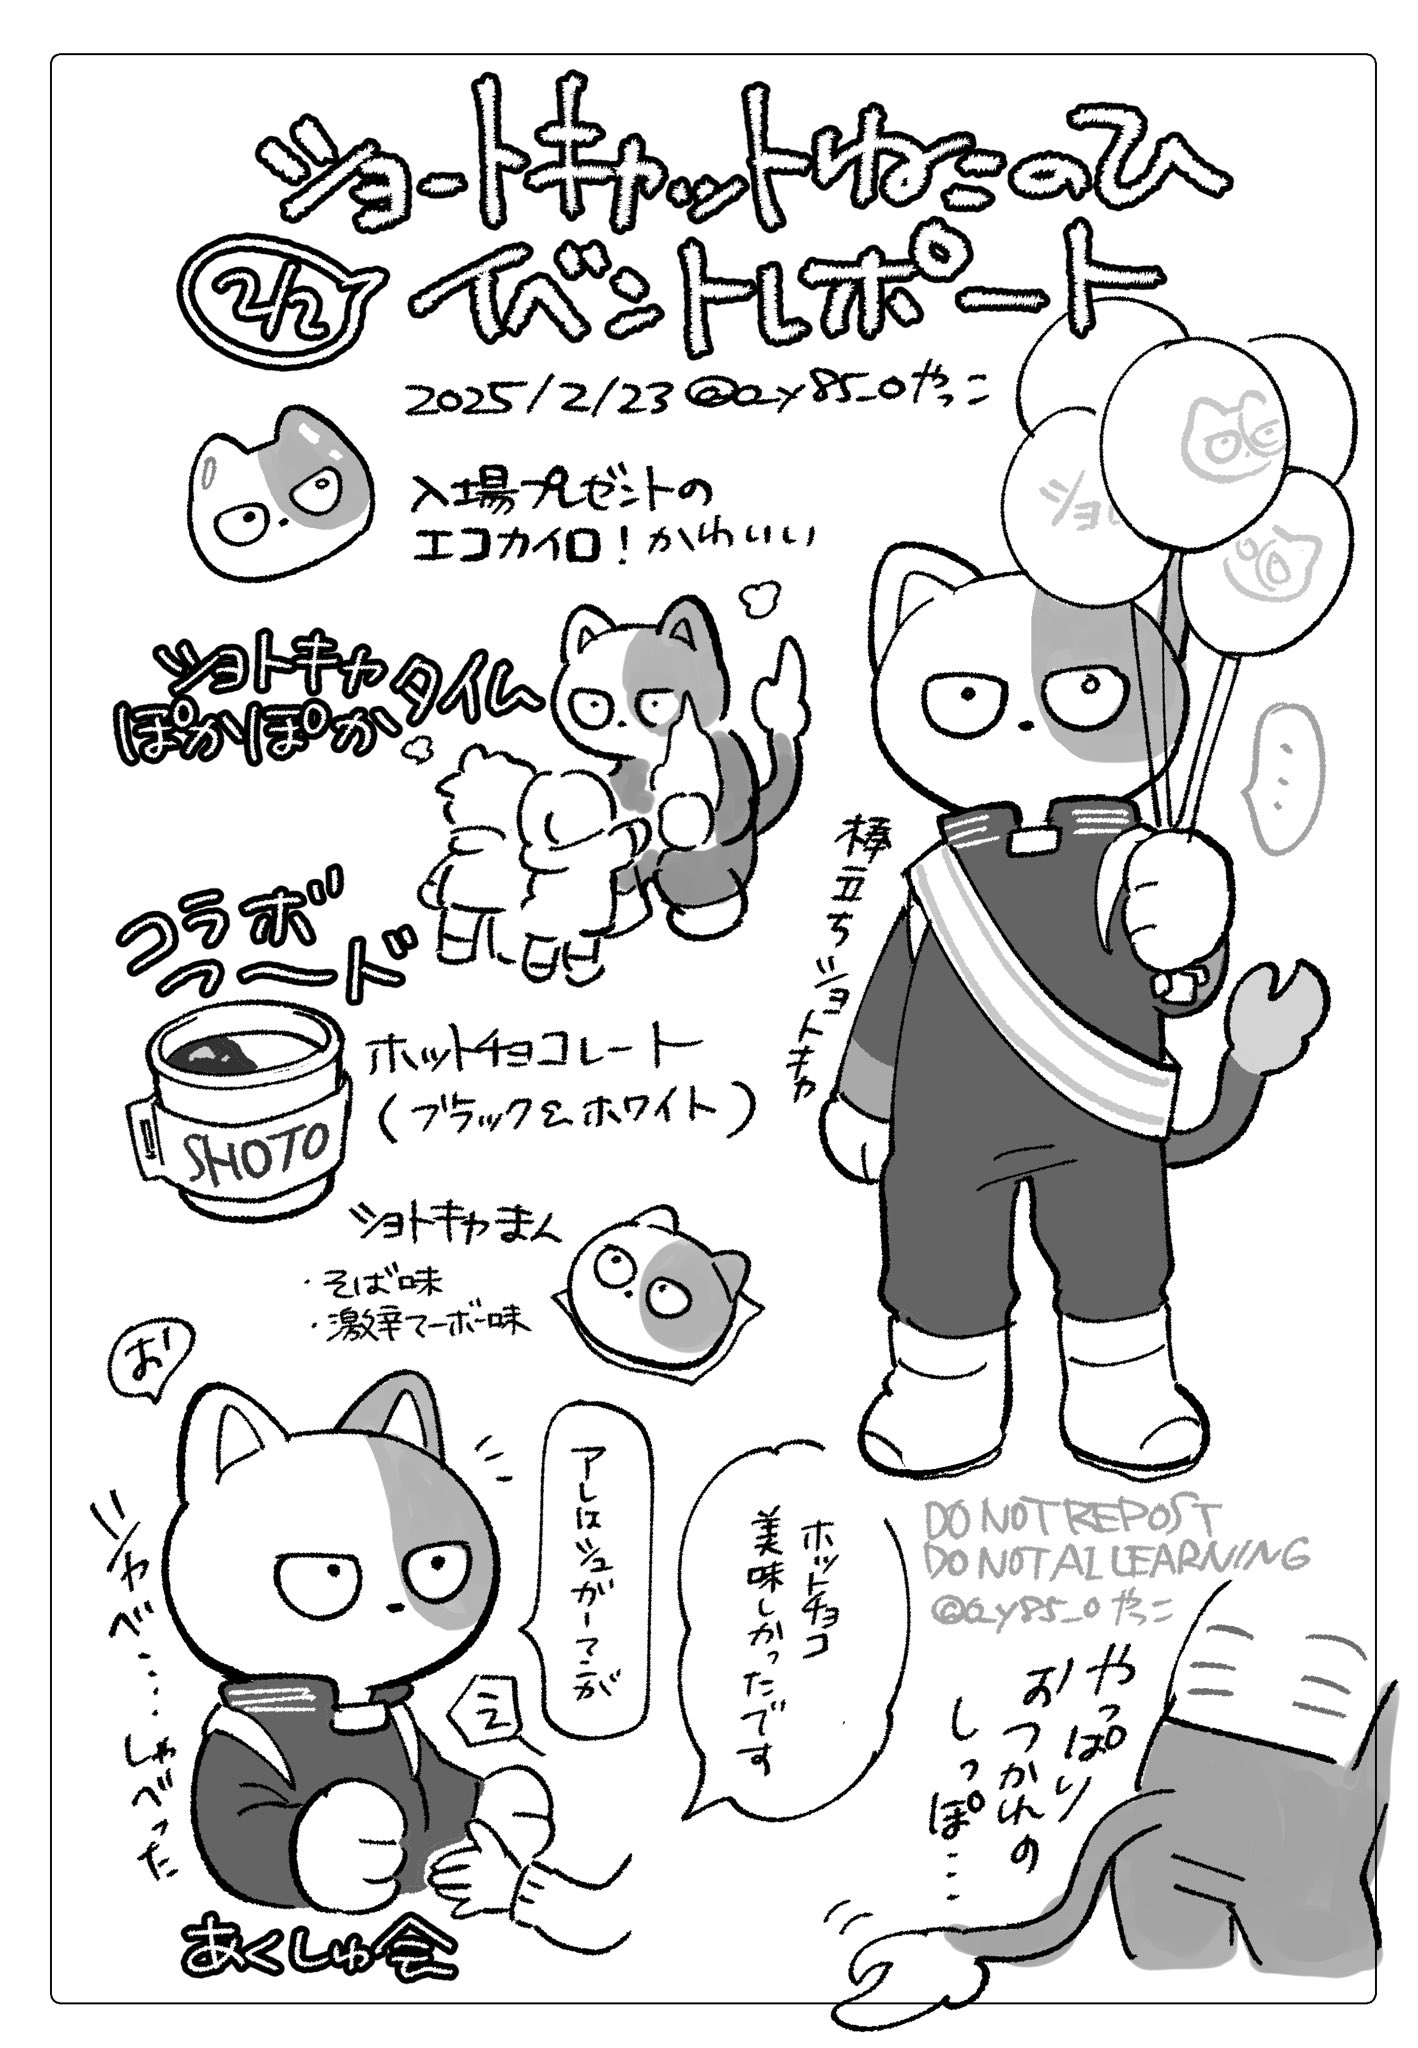 ショートキャットねこのひ
2/2
イベントレポート
2025/2/23 @ay85_0やっこ
入場プレゼントの
エコカイロ!かわいい
ショトキャ
ぽかぽか
タイム
ショ
・・・
棒立ちショトキャ
コラボ
フード
SHOTO
ホットチョコレート
(ブラック&ホワイト)
ショトキャまん
・そば味
・激辛マーボー味
お
シャベ‥‥しゃべった
アレはシュガーマンが
ホットチョコ
美味しかったです
あくしゅ会
DO NOT REPOST
DO NOT AI LEARNING
@ay85_0 やっこ
やっぱり
おつかれの
しっぽ…